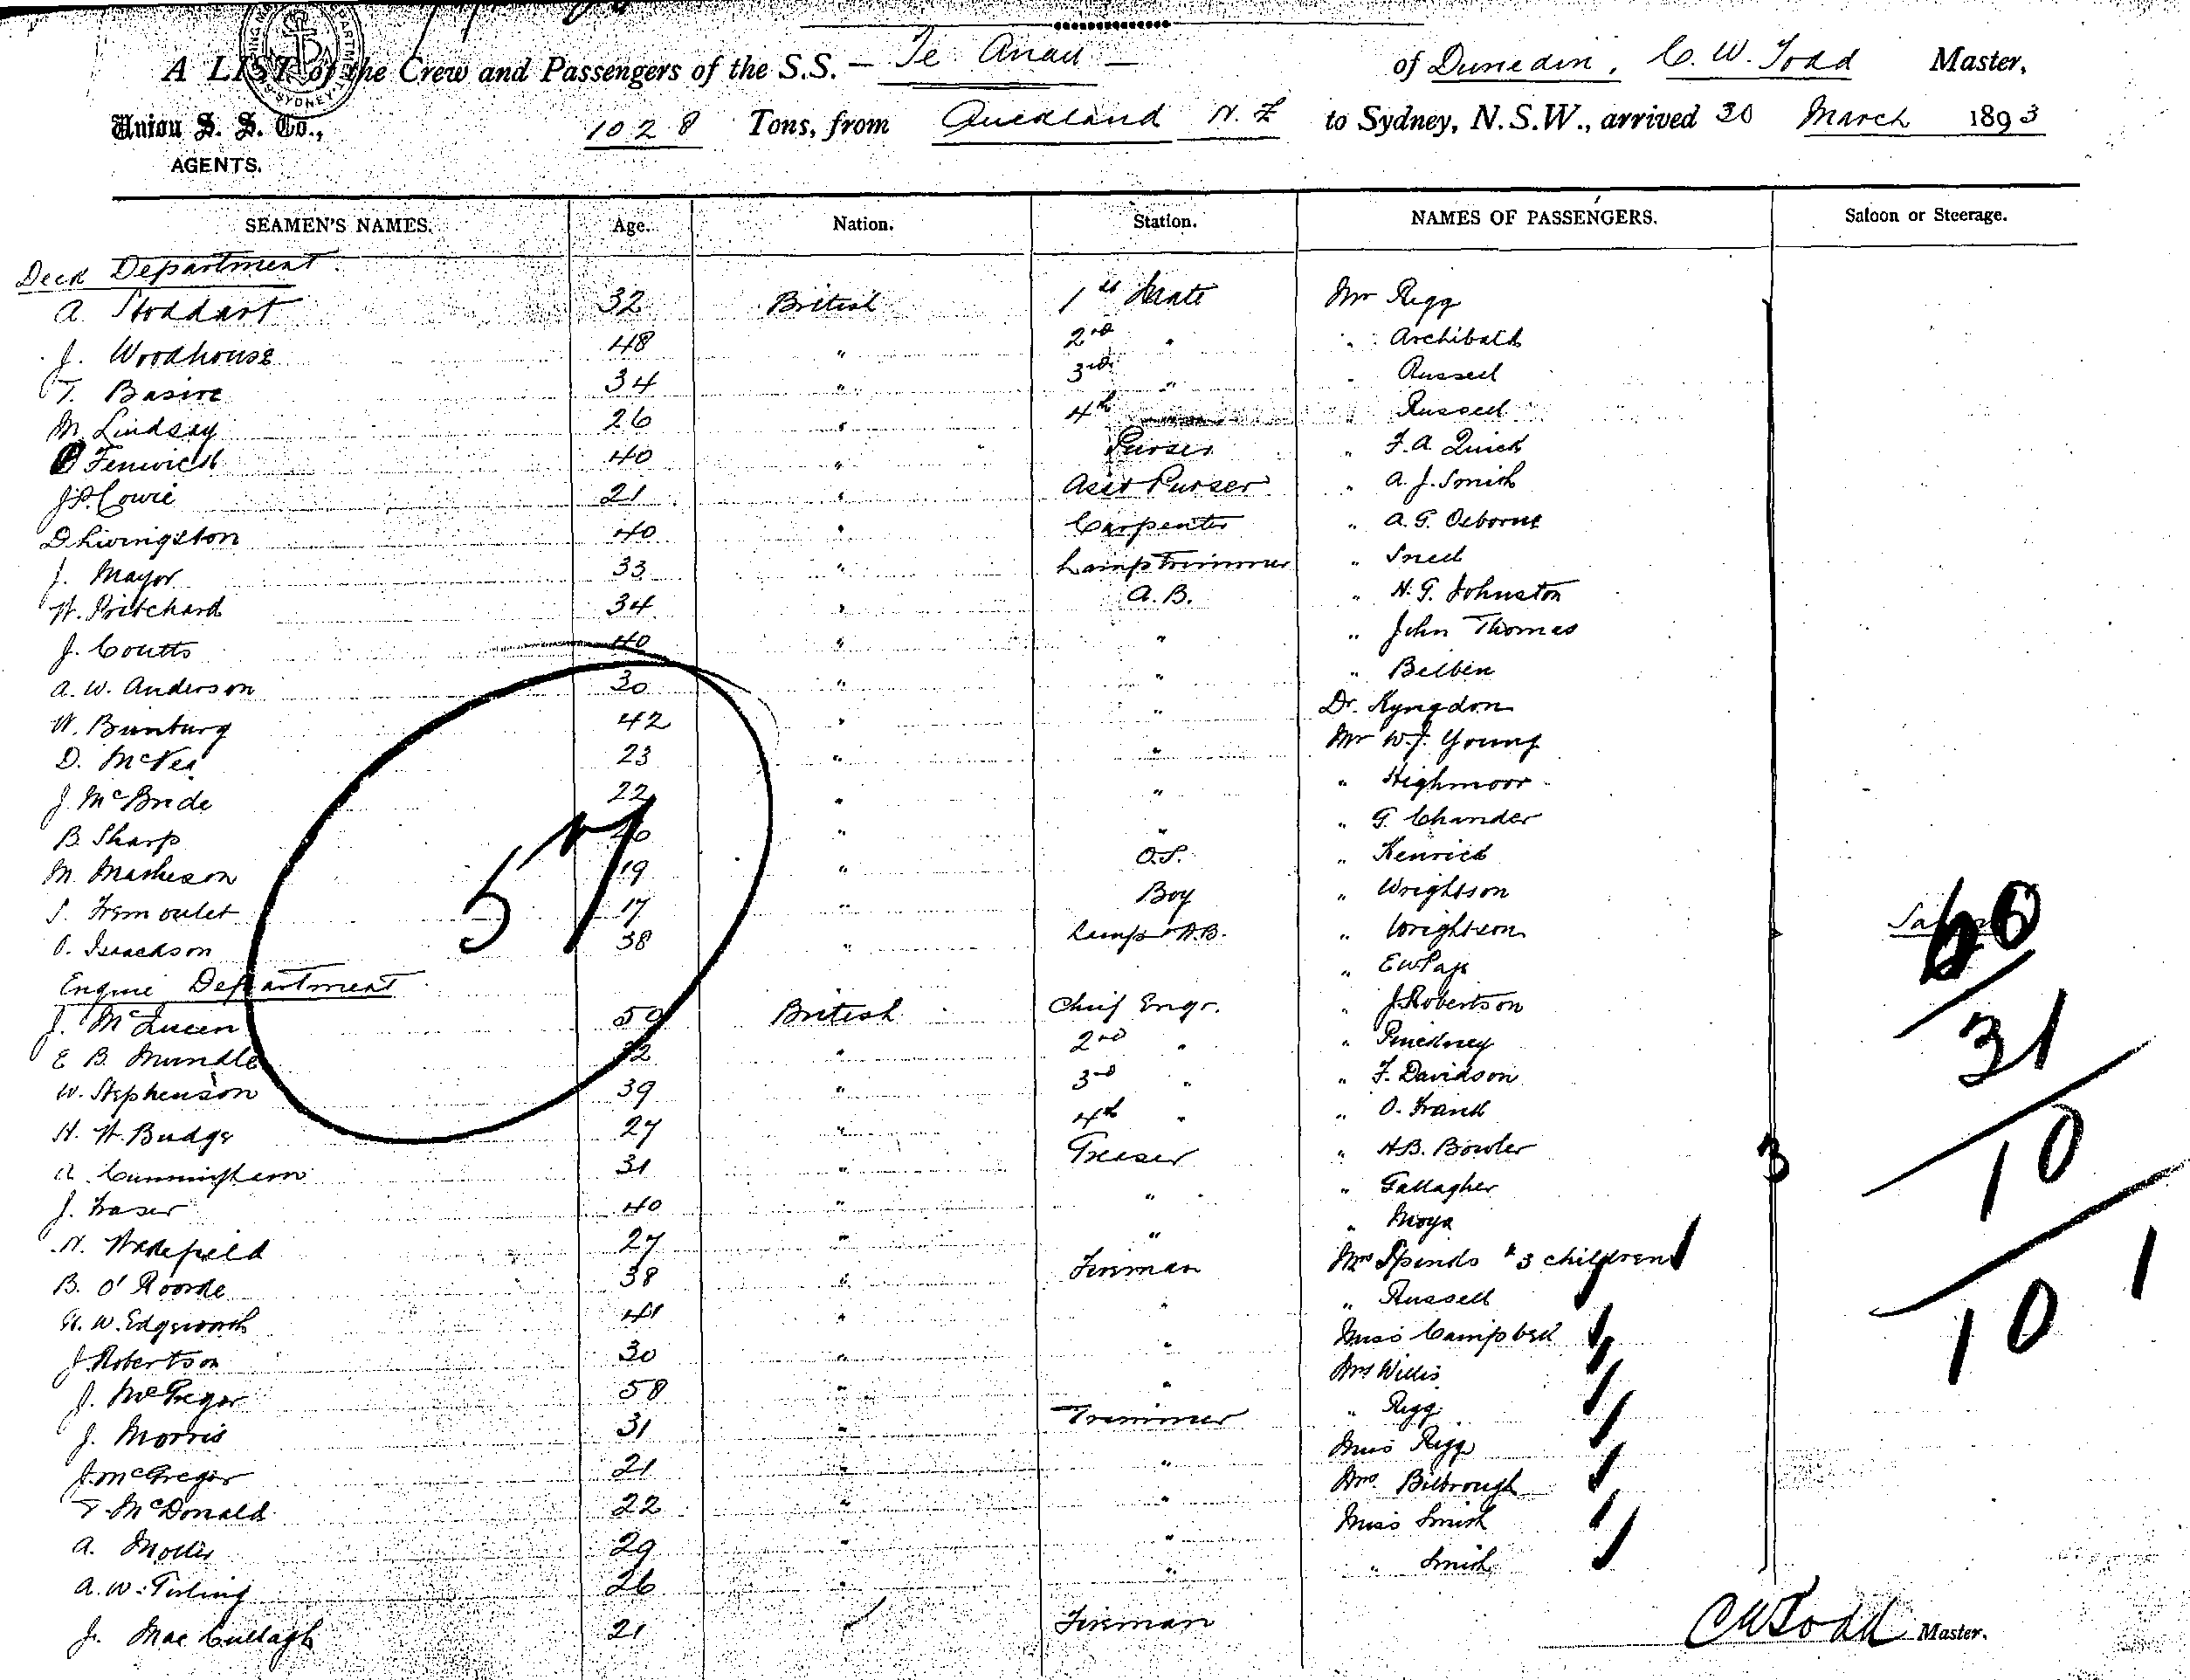 A LIST of the Crew and Passengers of the S.S. — Te Anau — of Dunedin, C. W. Todd Master,
Union S. S. Co., AGENTS. 1028 Tons, from Auckland N.Z to Sydney, N.S.W., arrived 30 March 1893
SEAMEN'S NAMES. Age. Nation. Station. NAMES OF PASSENGERS. Saloon or Steerage.
Deck Department
A Stoddart 32 British 1st Mate Mr Rigg
J. Woodhouse 48 " 2nd " " Archibald
T. Basire 34 " 3rd " " Russell
M. Lindsay 26 " 4th " Russell
Fenwick 40 " Purser " F. A. Quick
J.P. Cowie 21 " Asst Purser " A. J. Smith
D Livingston 40 " Carpenter " A. G. Osborne
J. Mayor 33 " Lamp Trimmer " Snell
W. Pritchard 34 " A.B. " H. G. Johnston
J. Coutts 40 " " " John Thomas
A. W. Anderson 30 " " " Belben
W. Bunbury 42 " " Dr. Kyngdon
D. McVea 23 " " Mr W. J. Young
J. McBride 22 " " " Highmoor
B. Sharp " " " G. Chander
M. Matheson 19 " O.S. " Kenrick
S. Fremoulet 17 " Boy " Wrightson
O. Isackson 38 " Lamps A.B. " Wrightson
Engine Department " E W Page
J. McQueen 50 British Chief Engr. " J. Robertson
E B. Mundle 32 " 2nd " " Pinckney
W. Stephenson 39 " 3rd " " F. Davidson
H. W. Budge 27 " 4th " " O. Frank
A. Cunningham 31 " Greaser " H.B. Bowler 3
J. Fraser 40 " " " Gallagher
N. Wakefield 27 " " " Moya
B. O'Roorke 38 " Fireman Mrs Spinds & 3 children
H. W. Edgeworth 41 " " " Russell
J. Robertson 30 " " Miss Campbell
J. McGregor 58 " " Mrs Willis
J. Morris 31 " Trimmer " Rigg
J. McGregor 21 " " Miss Rigg
T. McDonald 22 " " Mrs. Bilbrough
A. Moller 29 " " Miss Smith
A. W. Tirling 26 " " " Smith
J. MacCullagh 21 " Fireman
57
60
31
10
101
C W Todd Master.